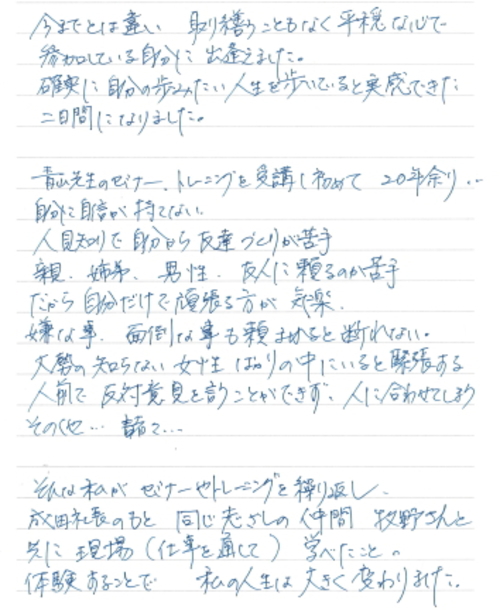 今までとは違い 取り繕うこともなく平穏な心で
参加している自分に出逢えました。
確実に自分の歩みたい人生を歩いていると実感できた
二日間になりました。
青山先生のセミナー、トレーニングを受講し初めて 20年余り…
自分に自信が持てない
人見知りで自分から友達づくりが苦手
親、姉弟、男性、友人に頼るのが苦手
だから自分だけで頑張る方が気楽、
嫌な事、面倒な事も頼まれると断れない。
大勢の知らない女性ばかりの中にいると緊張する
人前で反対意見を言うことができず、人に合わせてしまう
その他…
そんな私がセミナーやトレーニングを繰り返し、
成田社長のもと 同じ志ざしの仲間 牧野さんと
共に現場(仕事を通して)学べたこと。
体験することで 私の人生は大きく変わりました。